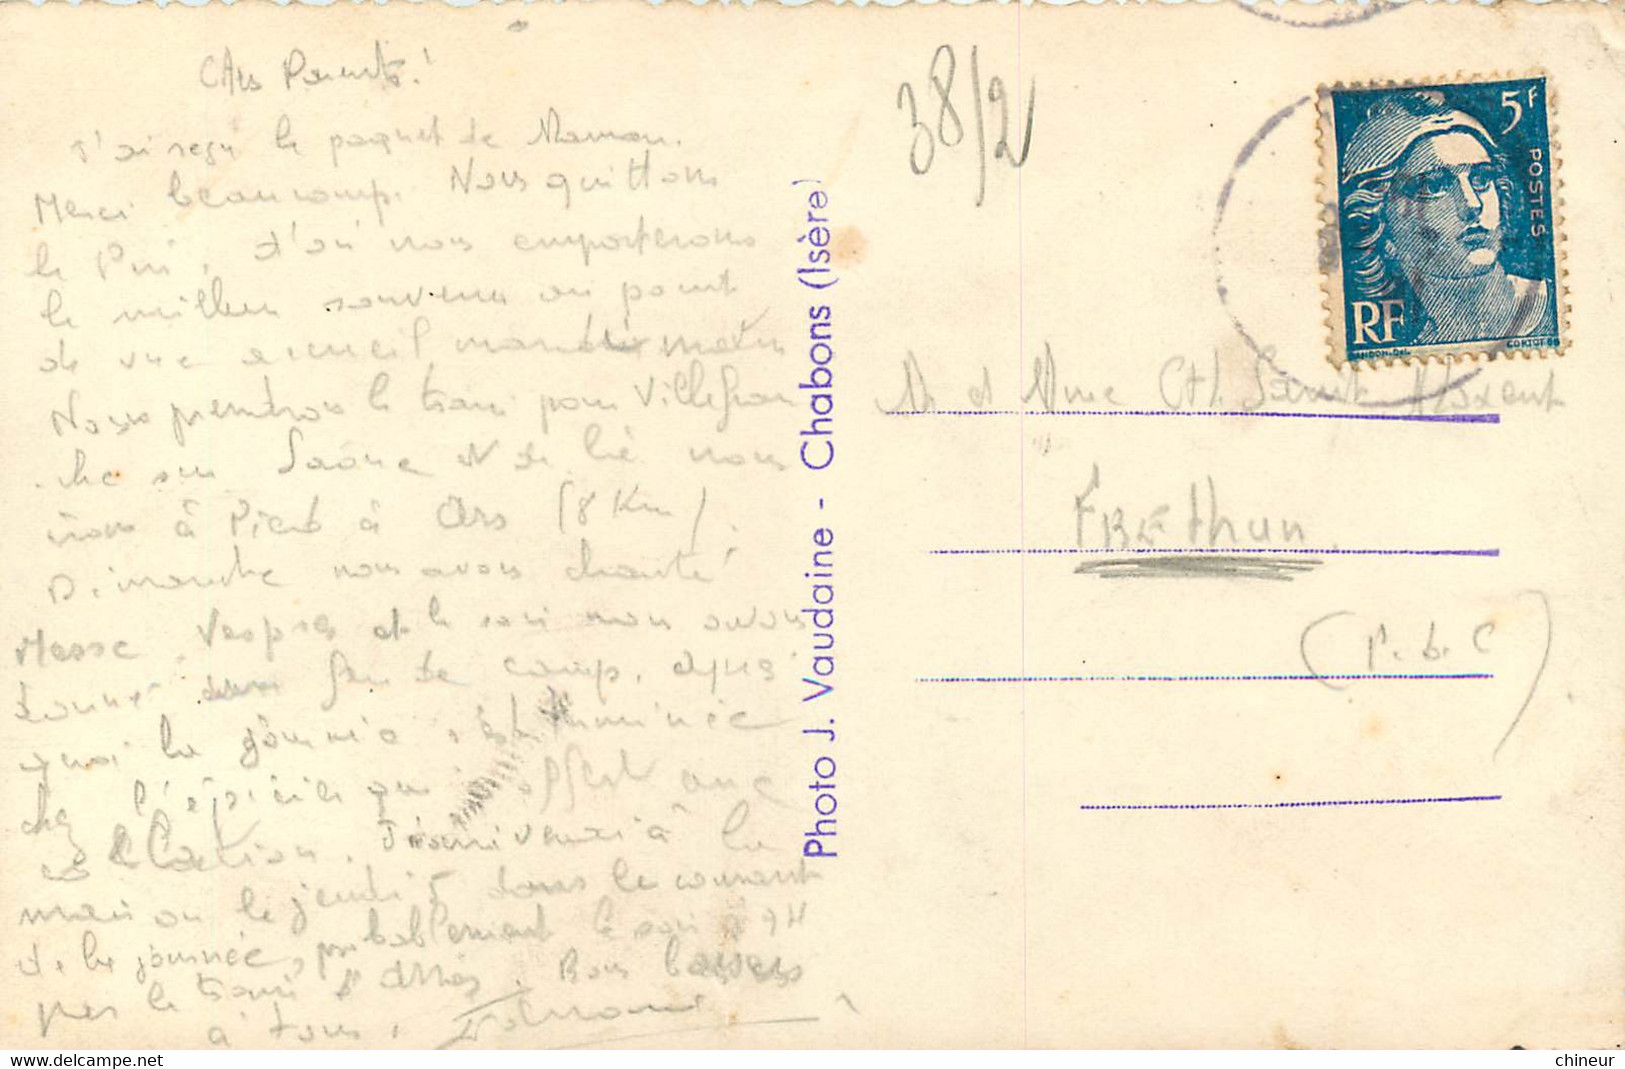 Chers Parents!
J'ai reçu le paquet de Maman.
Merci beaucoup. Nous quittons
le Pin, d'où nous emporterons
le meilleur souvenir au point
de vue accueil
Nous prendrons le train pour Villefran
che sur Saône et de là nous
irons à Pied à Ars (8 Km).
Dimanche nous avons chanté
Messe, Vespres et le soir nous avons
donné un feu de camp, après
quoi la journée s'est terminée
chez l'épicier qui offert une
collation. J'arriverai à la
maison le jeudi 5 dans le courant
de la journée, probablement le soir à 9H
par le train d'Arras. Bons baisers
à tous.
38/2
Photo J. Vaudaine - Chabons (Isère)
5F
POSTES
RF
GANDON.DEL
CORTOT.GR
M et Mme Cth Sauvk Vincent
FREthun.
(P. d. C)
chineur